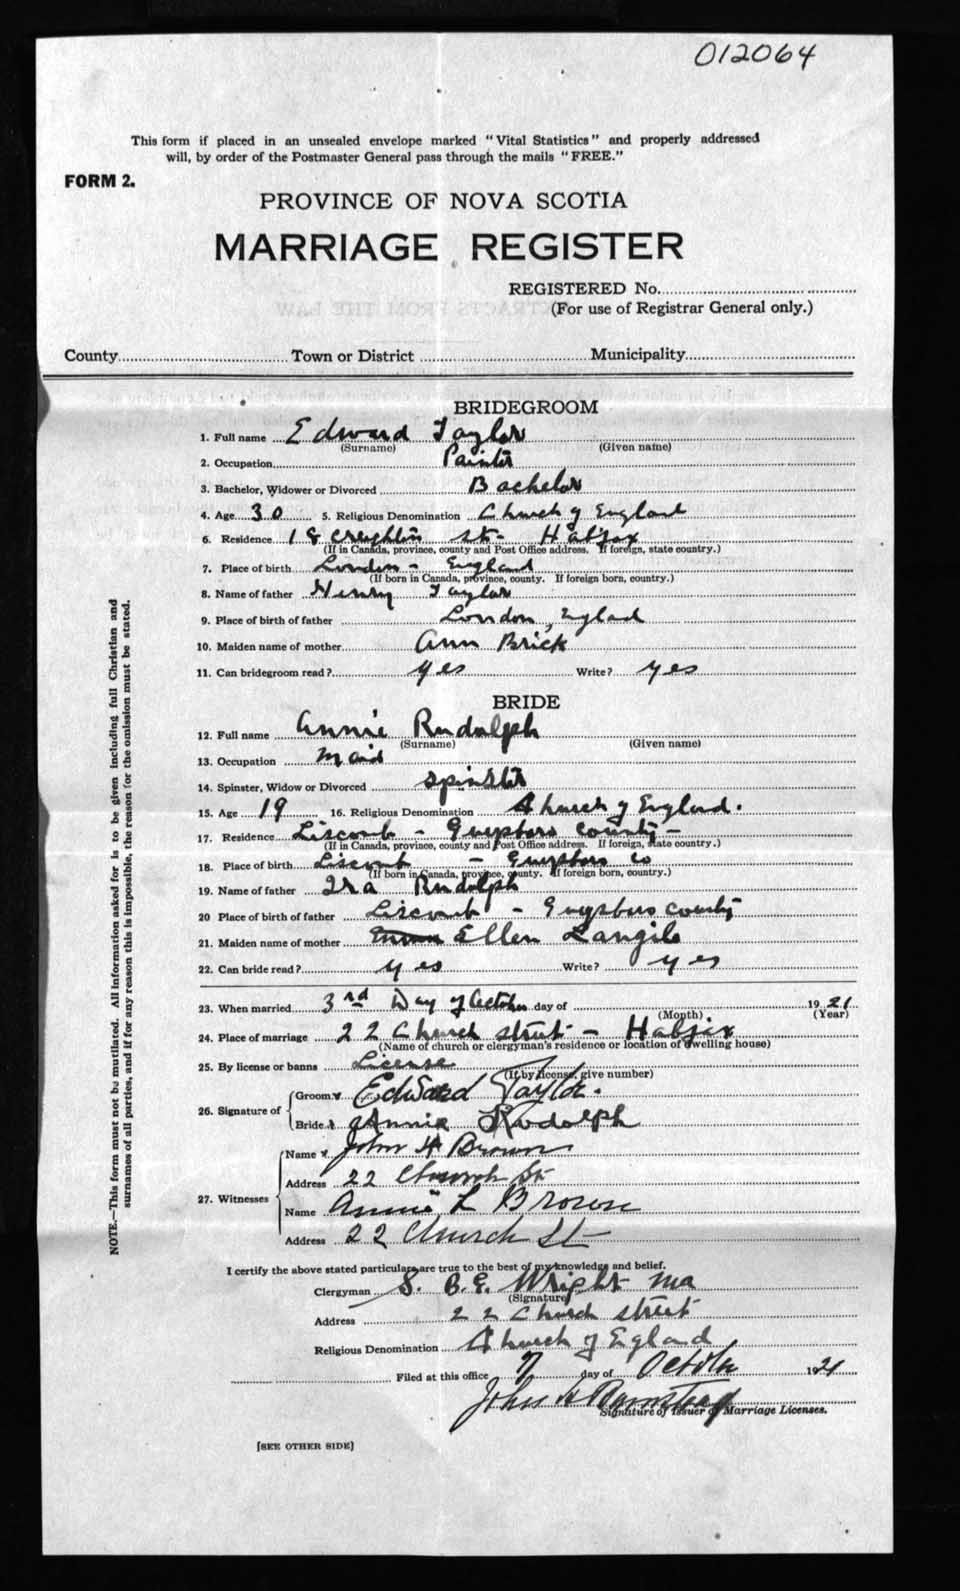 012064
This form if placed in an unsealed envelope marked "Vital Statistics" and properly addressed
will, by order of the Postmaster General pass through the mails "FREE."
FORM 2.
PROVINCE OF NOVA SCOTIA
MARRIAGE REGISTER
REGISTERED No.
(For use of Registrar General only.)
County Town or District Municipality
BRIDEGROOM
1. Full name Edward Taylor
(Surname) (Given name)
2. Occupation Painter
3. Bachelor, Widower or Divorced Bachelor
4. Age 30 5. Religious Denomination Church of England
6. Residence 18 Creighton St - Halifax
(If in Canada, province, county and Post Office address. If foreign, state country.)
7. Place of birth London - England
(If born in Canada, province, county. If foreign born, country.)
8. Name of father Henry Taylor
9. Place of birth of father London, England
10. Maiden name of mother Ann Brick
11. Can bridegroom read? yes Write? yes
BRIDE
12. Full name Annie Rudolph
(Surname) (Given name)
13. Occupation Maid
14. Spinster, Widow or Divorced Spinster
15. Age 19 16. Religious Denomination Church of England.
17. Residence Liscomb - Guysboro County -
(If in Canada, province, county and Post Office address. If foreign, state country.)
18. Place of birth Liscomb - Guysboro Co
(If born in Canada, province, county. If foreign born, country.)
19. Name of father Ira Rudolph
20 Place of birth of father Liscomb - Guysboro County
21. Maiden name of mother Ellen Langile
22. Can bride read? yes Write? yes
23. When married 3rd Day of October day of 1921
(Month) (Year)
24. Place of marriage 22 Church street - Halifax
(Name of church or clergyman's residence or location of dwelling house)
25. By license or banns License
(If by license, give number)
26. Signature of Groom Edward Taylor.
Bride Annie Rudolph
27. Witnesses Name John H Brown
Address 22 Church St
Name Annie L Brown
Address 22 Church St
I certify the above stated particulars are true to the best of my knowledge and belief.
Clergyman S. B.E. Wright MA
(Signature)
Address 22 Church street
Religious Denomination Church of England
Filed at this office 7 day of October 1921
John
Signature of Issuer of Marriage Licenses.
[SEE OTHER SIDE]
NOTE.—This form must not be mutilated. All information asked for is to be given including full Christian and
surnames of all parties, and if for any reason this is impossible, the reason for the omission must be stated.